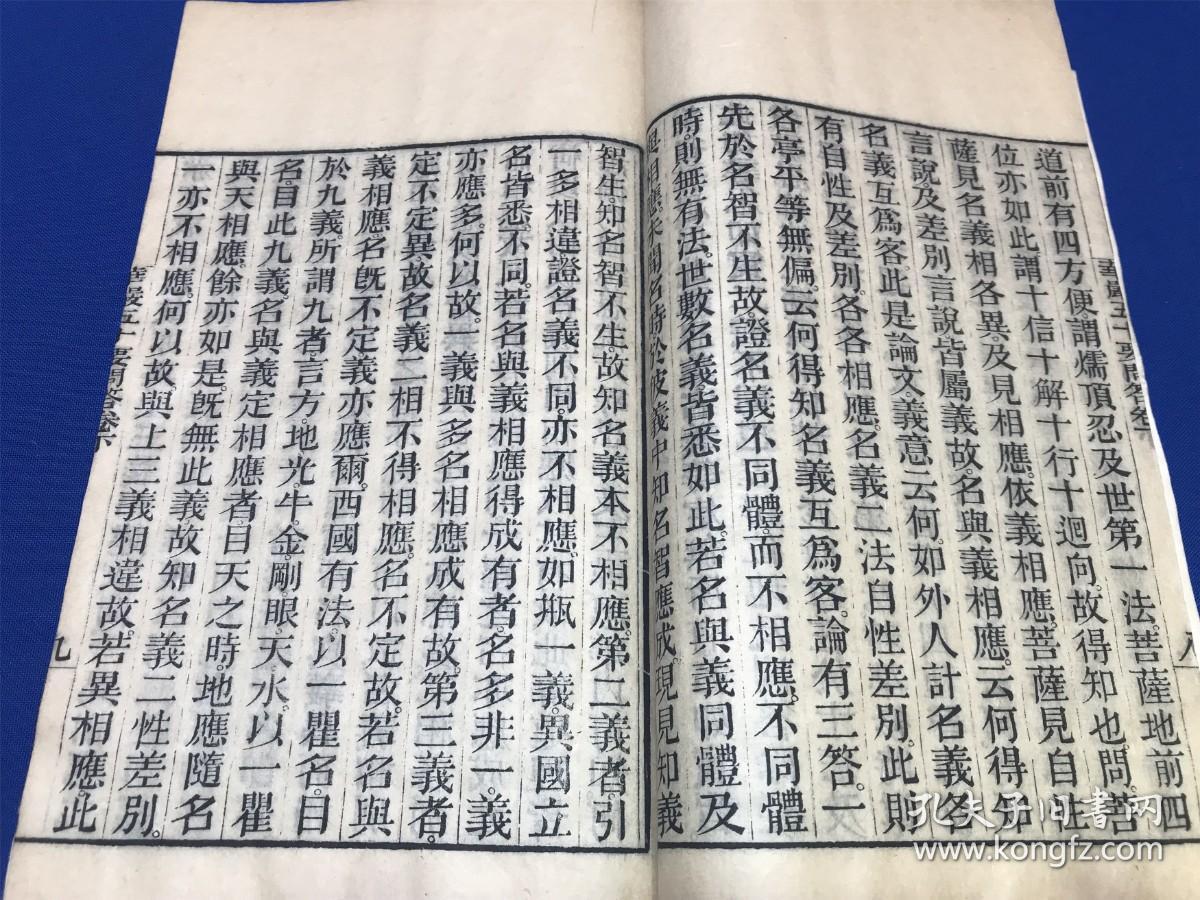 道前有四方便。謂煗頂忍及世第一法。菩薩地前四
位亦如此。謂十信十解十行十迴向。故得知也。問。菩
薩見名義相各異。及見相應。依義相應。菩薩見自性
言說。及差別言說皆屬義故。名與義相應。云何得知
名義互爲客。此是論文。義意云何。如外人計名義各
有自性及差別。各各相應。名義二法自性差別。此則
各亭平等無偏。云何得知名義互爲客。論有三答。一
先於名智不生故。證名義不同體。而不相應。不同體
時。則無有法。世數名義。皆悉如此。若名與義同體及
與相應。未聞名時。於彼義中知名智應成。現見知義
智生。知名智不生。故知名義本不相應。第二義者。引
一多相違證名義不同。亦不相應。如瓶一義。異國立
名皆悉不同。若名與義相應得成有者。名多非一。義
亦應多。何以故。一義與多名相應成有故。第三義者。
定不定異。故名義二相不得相應。名不定故。若名與
義相應。名既不定。義亦應爾。西國有法。以一瞿名。目
於九義。所謂九者。言方。地光。牛。金剛。眼。天。水。以一瞿
名。目此九義。名與義定相應者。目天之時。地應隨名
與天相應。餘亦如是。既無此義。故知名義二性差別。
一亦不相應。何以故。與上三義相違故。若異相應。此
華嚴五十要問答卷
八
華嚴五十要問答卷
九
孔夫子旧书网
www.kongfz.com